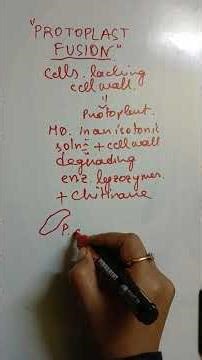 "PROTOPLAST
FUSION"
Cells lacking
cell wall
⇓
Protoplast
MO. in an isotonic
soln + cell wall
degrading
enz. lysozymes
+ chitinase
P.